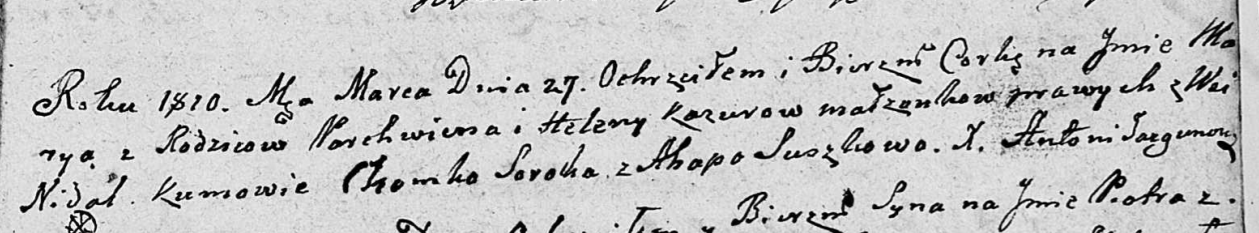 Roku 1810. Mca Marca Dnia 27. Ochrzciłem i Bierzm Corkę na Jmie Ma
ryą z Rodzicow Parchwiena i Heleny Kazurow małzonkow prawych z Wsi
Nidal. Kumowie Chomko Soroka z Ahapo Suszkowo. X.
Bierzm Syna na Jmie Piotra z